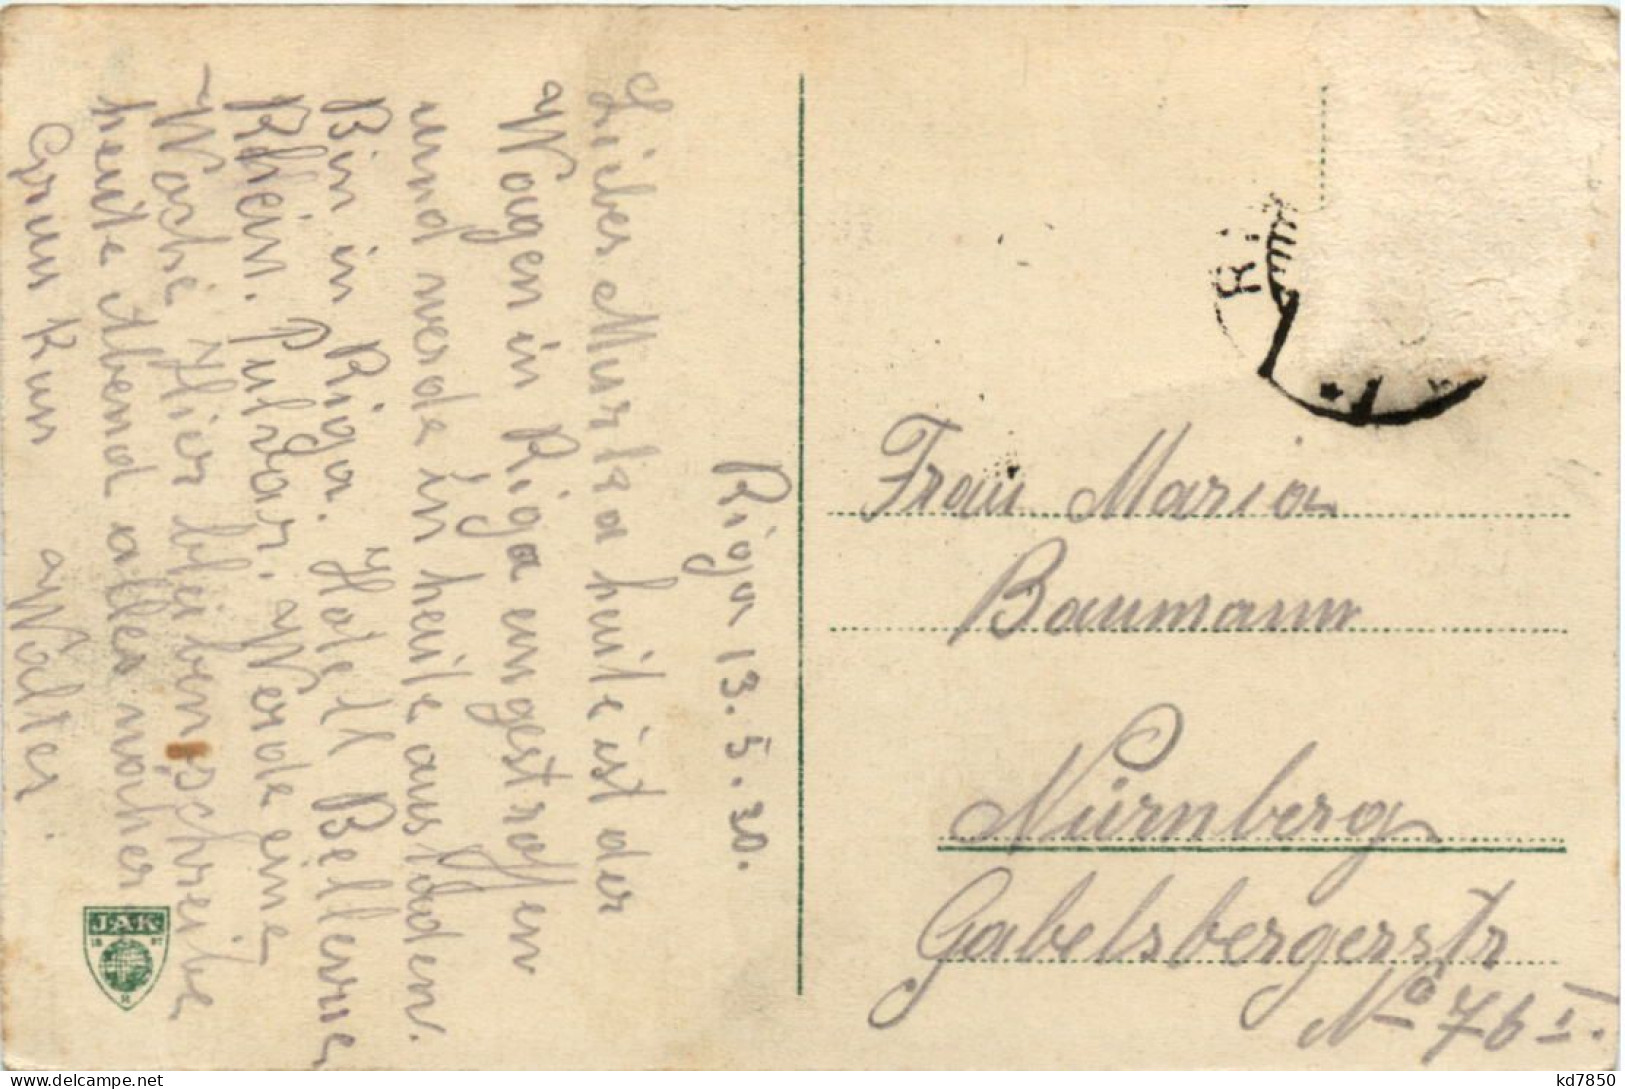 Riga 13. 5. 30.
Liebes Murkla heute ist der
Wagen in Riga eingestroffen
und werde in heite ausladen.
Bin in Riga. Hotell Bellevue
Rhein. Pulvar. Werde eine
Woche Hier bleiben, schreibe
heute Abend alles nacher
Grus Kus
Walter.
R.
Frau Maria
Baumann
Nürnberg
Gabelsbergerstr
No 76 I.
JAK
18 87
R
kd7850